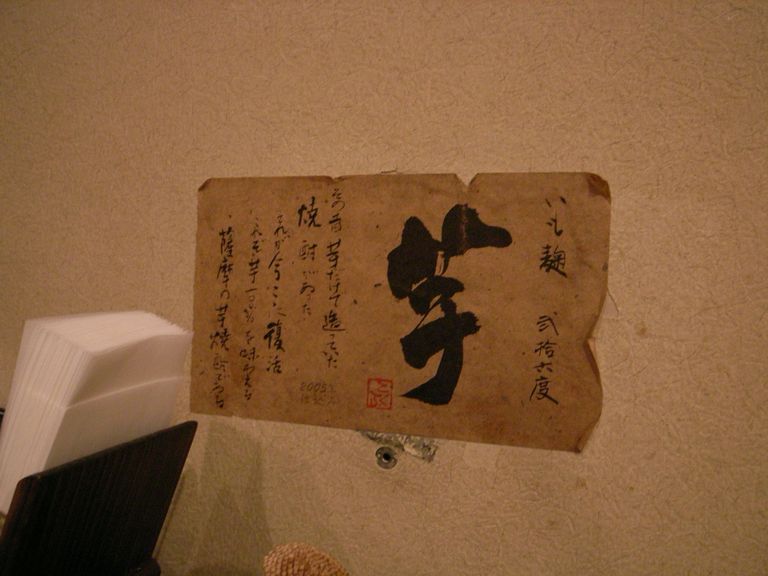 いも麹 弐拾六度
芋
その昔芋だけで造っていた
焼酎があった
これが今ここに復活
これぞ芋一〇〇%を味わえる
薩摩の芋焼酎である
2005